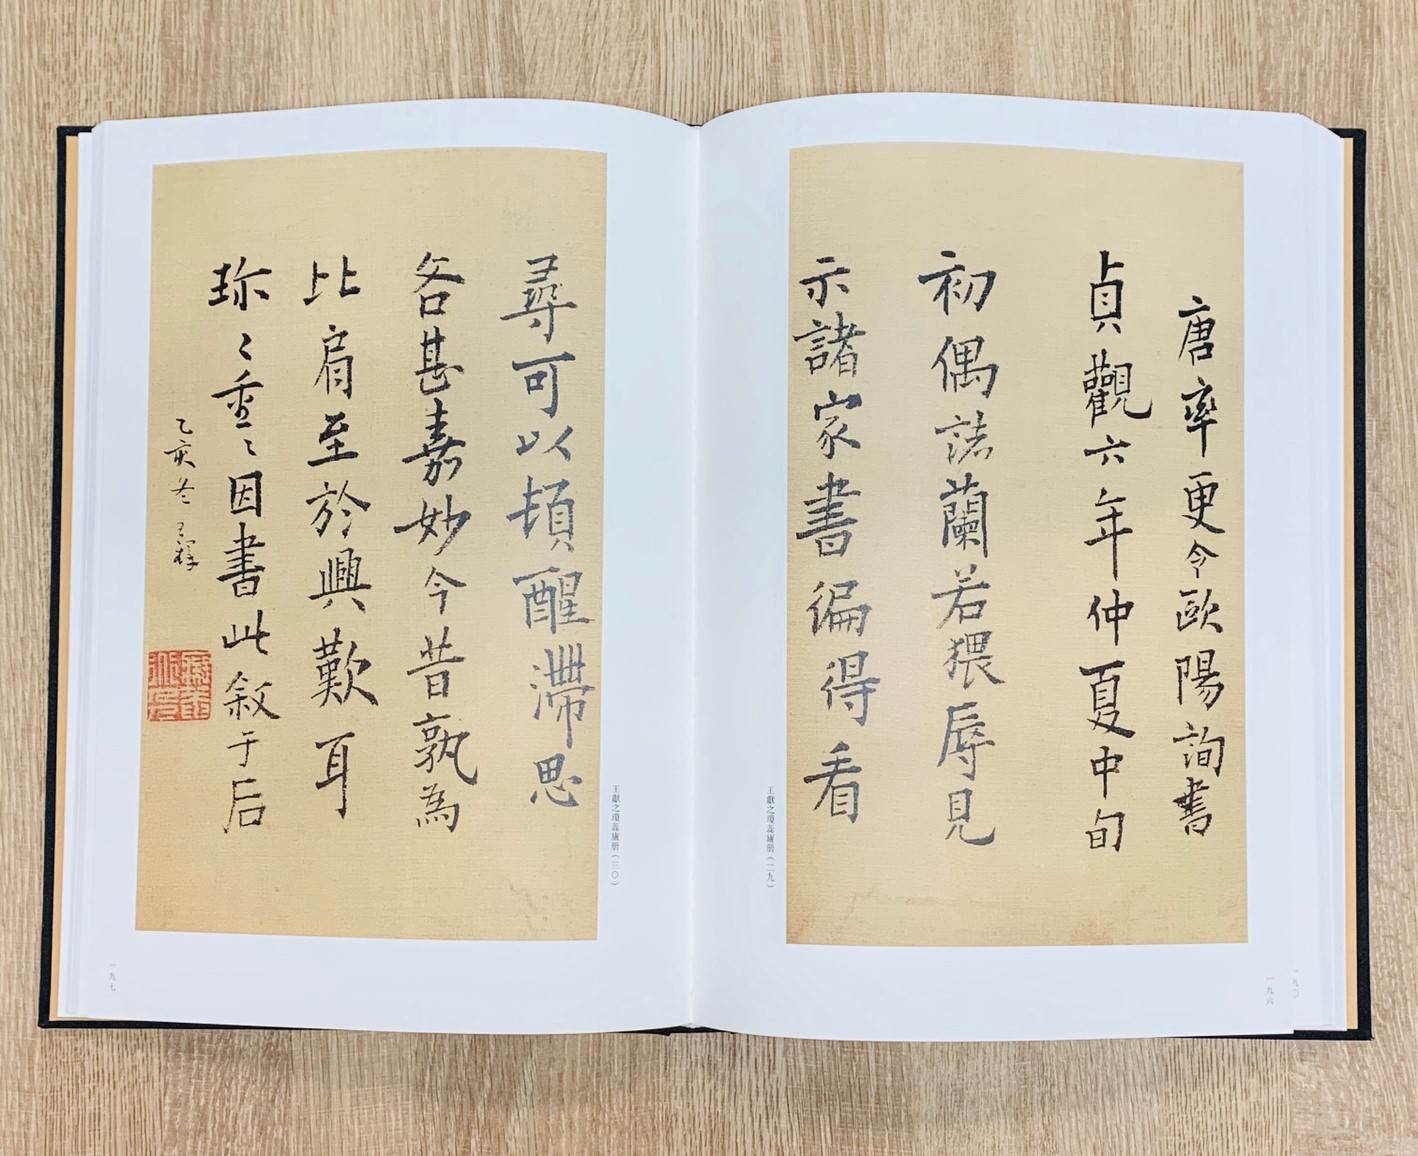 唐率更令歐陽詢書
貞觀六年仲夏中旬
初偶誌蘭若猥辱見
示諸家書徧得看
王獻之瓊蕊廬册（二九）
一九六
一九〇
尋可以頓醒滯思
各甚嘉妙今昔孰為
比肩至於興歎耳
珎〻重〻因書此敘于后
乙亥冬
王獻之瓊蕊廬册（三〇）
一九七